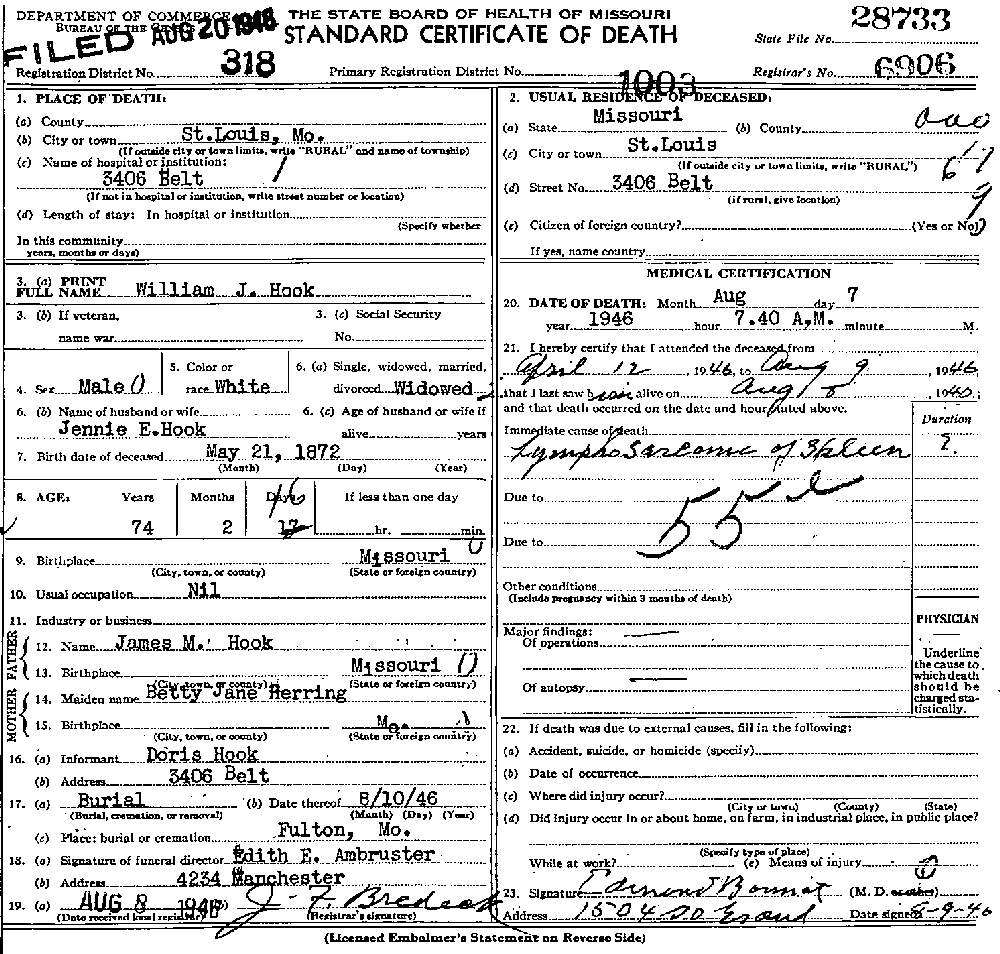 DEPARTMENT OF COMMERCE
BUREAU OF THE CENSUS
FILED AUG 20 1946
THE STATE BOARD OF HEALTH OF MISSOURI
STANDARD CERTIFICATE OF DEATH
28733
State File No.
Registration District No. 318
Primary Registration District No. 1003
Registrar's No. 6906
1. PLACE OF DEATH:
(a) County
(b) City or town St.Louis, Mo.
(If outside city or town limits, write "RURAL" and name of township)
(c) Name of hospital or institution:
3406 Belt
(If not in hospital or institution, write street number or location)
(d) Length of stay: In hospital or institution
(Specify whether
In this community
years, months or days)
3. (a) PRINT
FULL NAME William J. Hook
3. (b) If veteran,
name war
3. (c) Social Security
No.
4. Sex Male
5. Color or
race White
6. (a) Single, widowed, married,
divorced Widowed
6. (b) Name of husband or wife
Jennie E.Hook
6. (c) Age of husband or wife if
alive years
7. Birth date of deceased May 21, 1872
(Month) (Day) (Year)
8. AGE: Years Months Days If less than one day
16
74 2 17 hr. min
9. Birthplace Missouri
(City, town, or county) (State or foreign country)
10. Usual occupation Nil
11. Industry or business
FATHER
12. Name James M. Hook
13. Birthplace Missouri
(City, town, or county) (State or foreign country)
MOTHER
14. Maiden name Betty Jane Herring
15. Birthplace Mo.
(City, town, or county) (State or foreign country)
16. (a) Informant Doris Hook
(b) Address 3406 Belt
17. (a) Burial (b) Date thereof 8/10/46
(Burial, cremation, or removal) (Month) (Day) (Year)
(c) Place: burial or cremation Fulton, Mo.
18. (a) Signature of funeral director Edith E. Ambruster
(b) Address 4234 Manchester
19. (a) AUG 8 1946 (b) J. F. Bredeck
(Date received local registrar) (Registrar's signature)
2. USUAL RESIDENCE OF DECEASED:
(a) State Missouri (b) County 000
(c) City or town St.Louis 17
(If outside city or town limits, write "RURAL") 6
(d) Street No. 3406 Belt 9
(if rural, give location)
(e) Citizen of foreign country? (Yes or No)
If yes, name country
MEDICAL CERTIFICATION
20. DATE OF DEATH: Month Aug day 7
year 1946 hour 7.40 A.M. minute M.
21. I hereby certify that I attended the deceased from
April 12, 1946, to Aug 9, 1946;
that I last saw him alive on Aug, 1946;
and that death occurred on the date and hour stated above.
Duration
Immediate cause of death
Lymphosarcoma of Spleen ?
Due to
55
Due to
Other conditions
(Include pregnancy within 3 months of death)
Major findings:
Of operations
Of autopsy
PHYSICIAN
Underline
the cause to
which death
should be
charged sta-
tistically.
22. If death was due to external causes, fill in the following:
(a) Accident, suicide, or homicide (specify)
(b) Date of occurrence
(c) Where did injury occur?
(City or town) (County) (State)
(d) Did injury occur in or about home, on farm, in industrial place, in public place?
(Specify type of place)
While at work? (e) Means of injury
23. Signature Edmond Bonnot (M. D. or other)
Address 1504 So Grand Date signed 8-9-46
(Licensed Embalmer's Statement on Reverse Side)